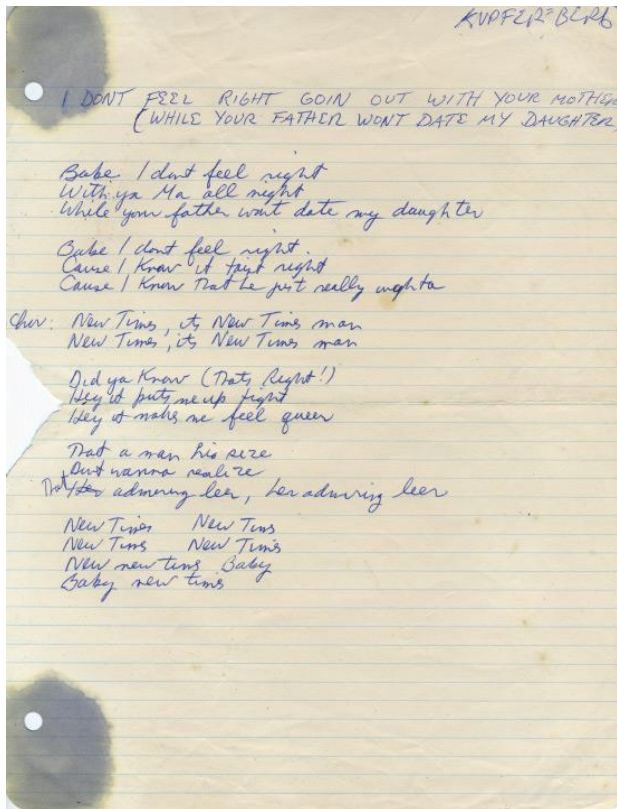 KUPFERBERG
I DONT FEEL RIGHT GOIN OUT WITH YOUR MOTHER
(WHILE YOUR FATHER WONT DATE MY DAUGHTER)
Babe I dont feel right
With ya Ma all night
While your father wont date my daughter
Babe I dont feel right.
Cause I Know it taint right
Cause I Know that he just really oughta
Chor: New Times, its New Times man
New Times, its New Times man
Did ya Know (Thats Right!)
Hey it puts me up tight
Hey it makes me feel queer
That a man his size
Dont wanna realize
That her admiring leer, her admiring leer
New Times New Times
New Times New Times
New new times Baby
Baby new times